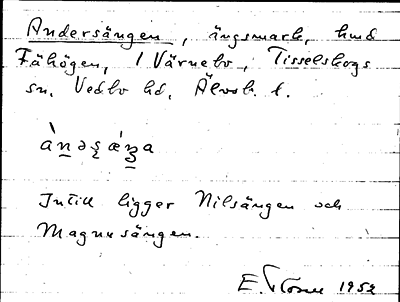 Andersängen, ängsmark, hmd
Fähögen, 1 Värnebo, Tisselskogs
sn, Vedbo hd, Älvsb. l.
Intill ligger Nilsängen och
Magnusängen.
E. 1952